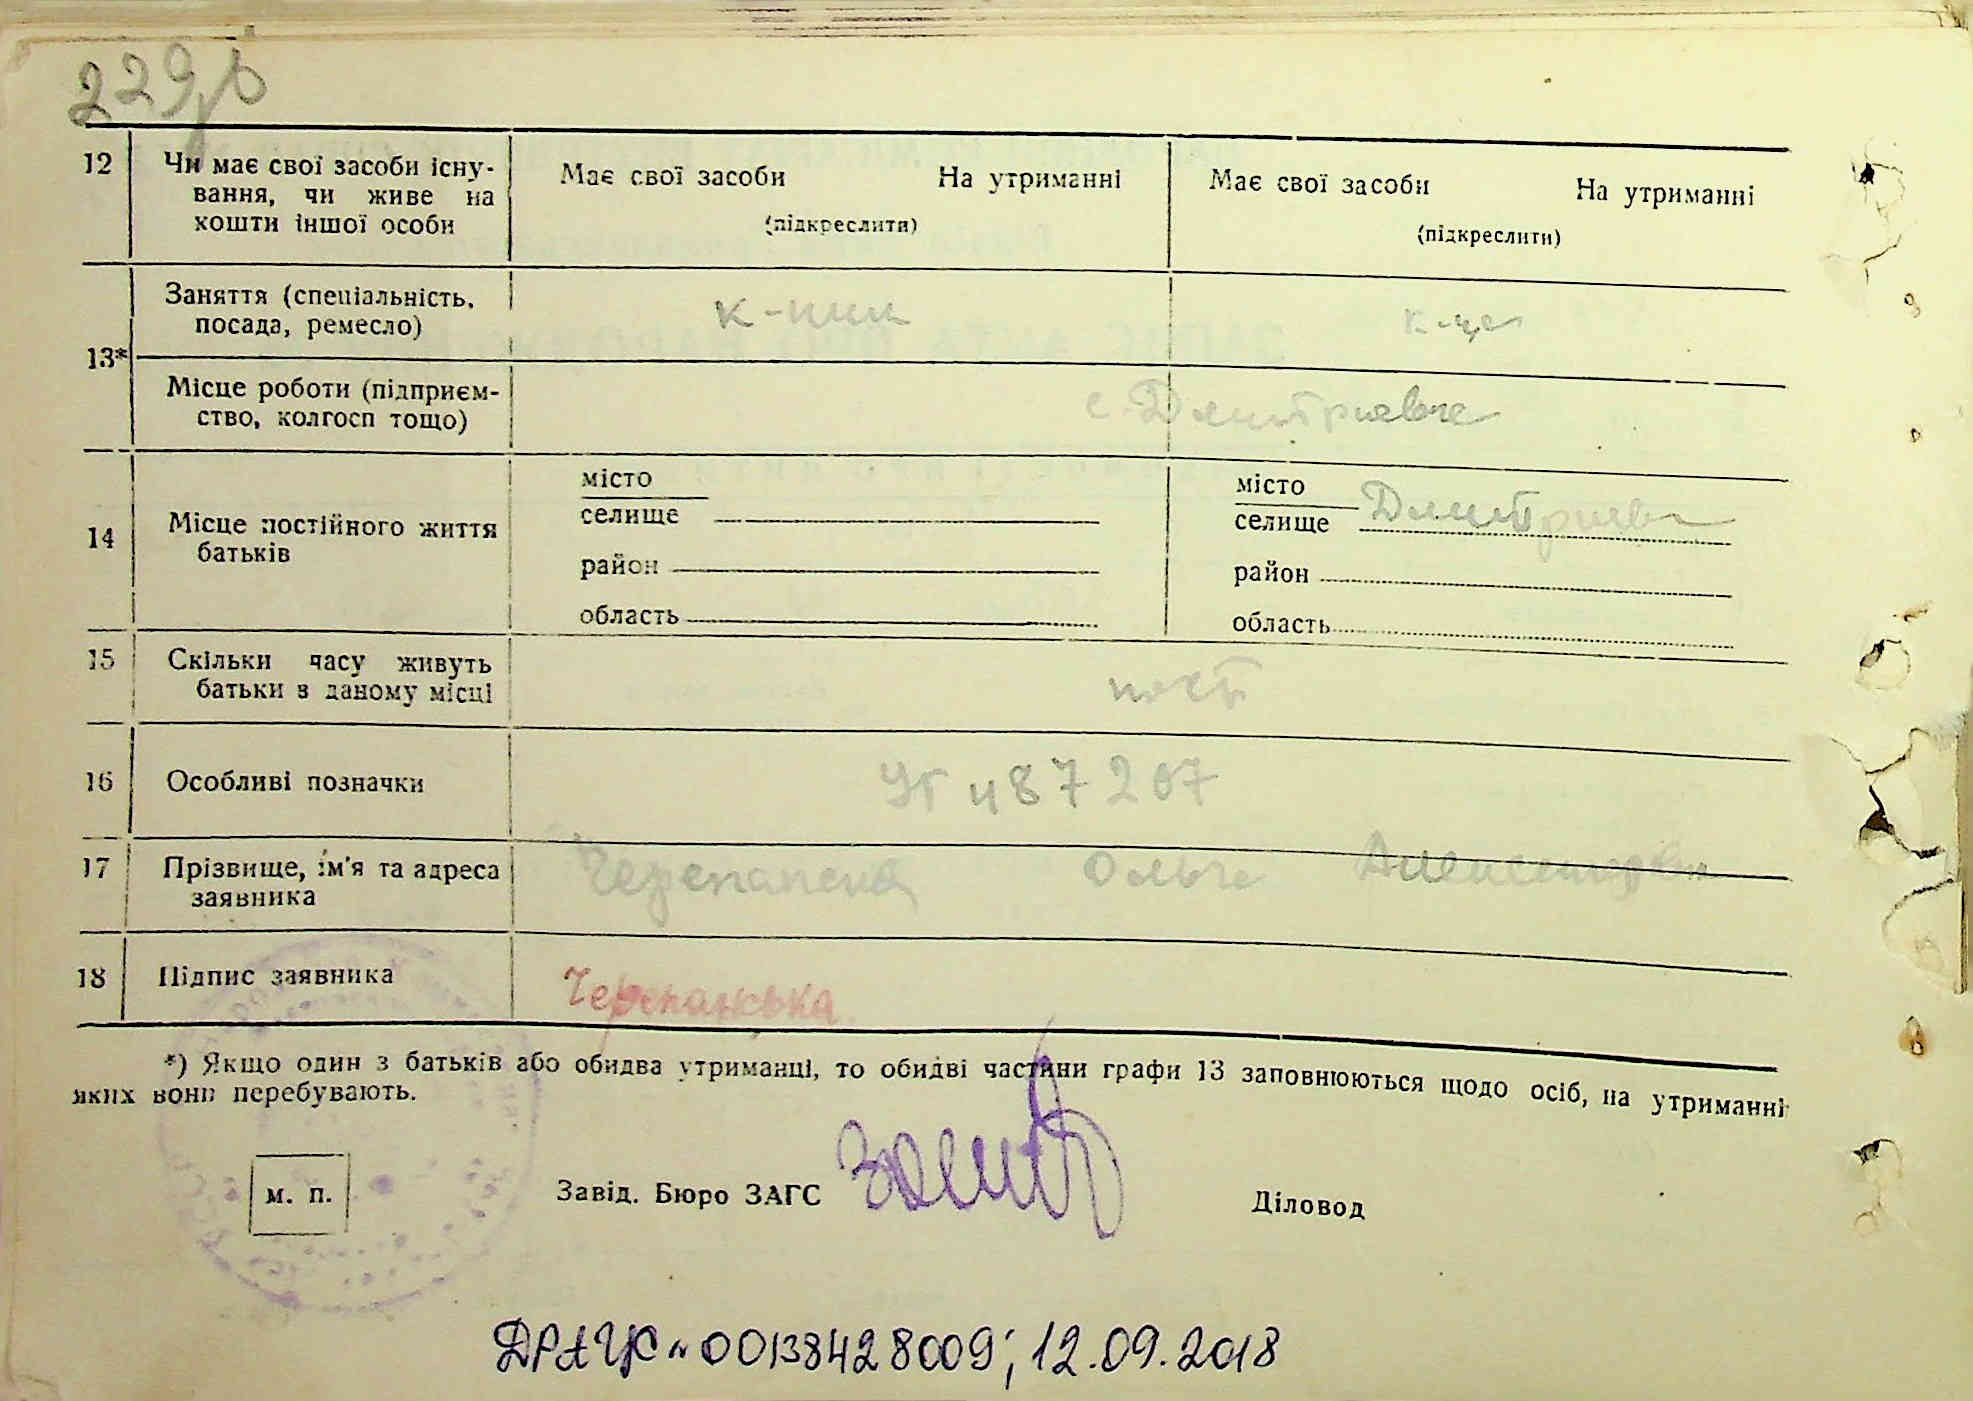 12 Чи має свої засоби існу-
вання, чи живе на
кошти іншої особи
Має свої засоби На утриманні
(підкреслити)
Має свої засоби На утриманні
(підкреслити)
13* Заняття (спеціальність,
посада, ремесло)
к-ник к-ця
Місце роботи (підприєм-
ство, колгосп тощо)
с.
14 Місце постійного життя
батьків
місто
селище
район
область
місто
селище
район
область
15 Скільки часу живуть
батьки в даному місці
пост
16 Особливі позначки
487207
17 Прізвище, ім'я та адреса
заявника
Ольга
18 Підпис заявника
Черепанська
*) Якщо один з батьків або обидва утриманці, то обидві частини графи 13 заповнюються щодо осіб, на утриманні
яких вони перебувають.
м. п.
Завід. Бюро ЗАГС
Діловод
ДРАЦС № 00138428009; 12.09.2018